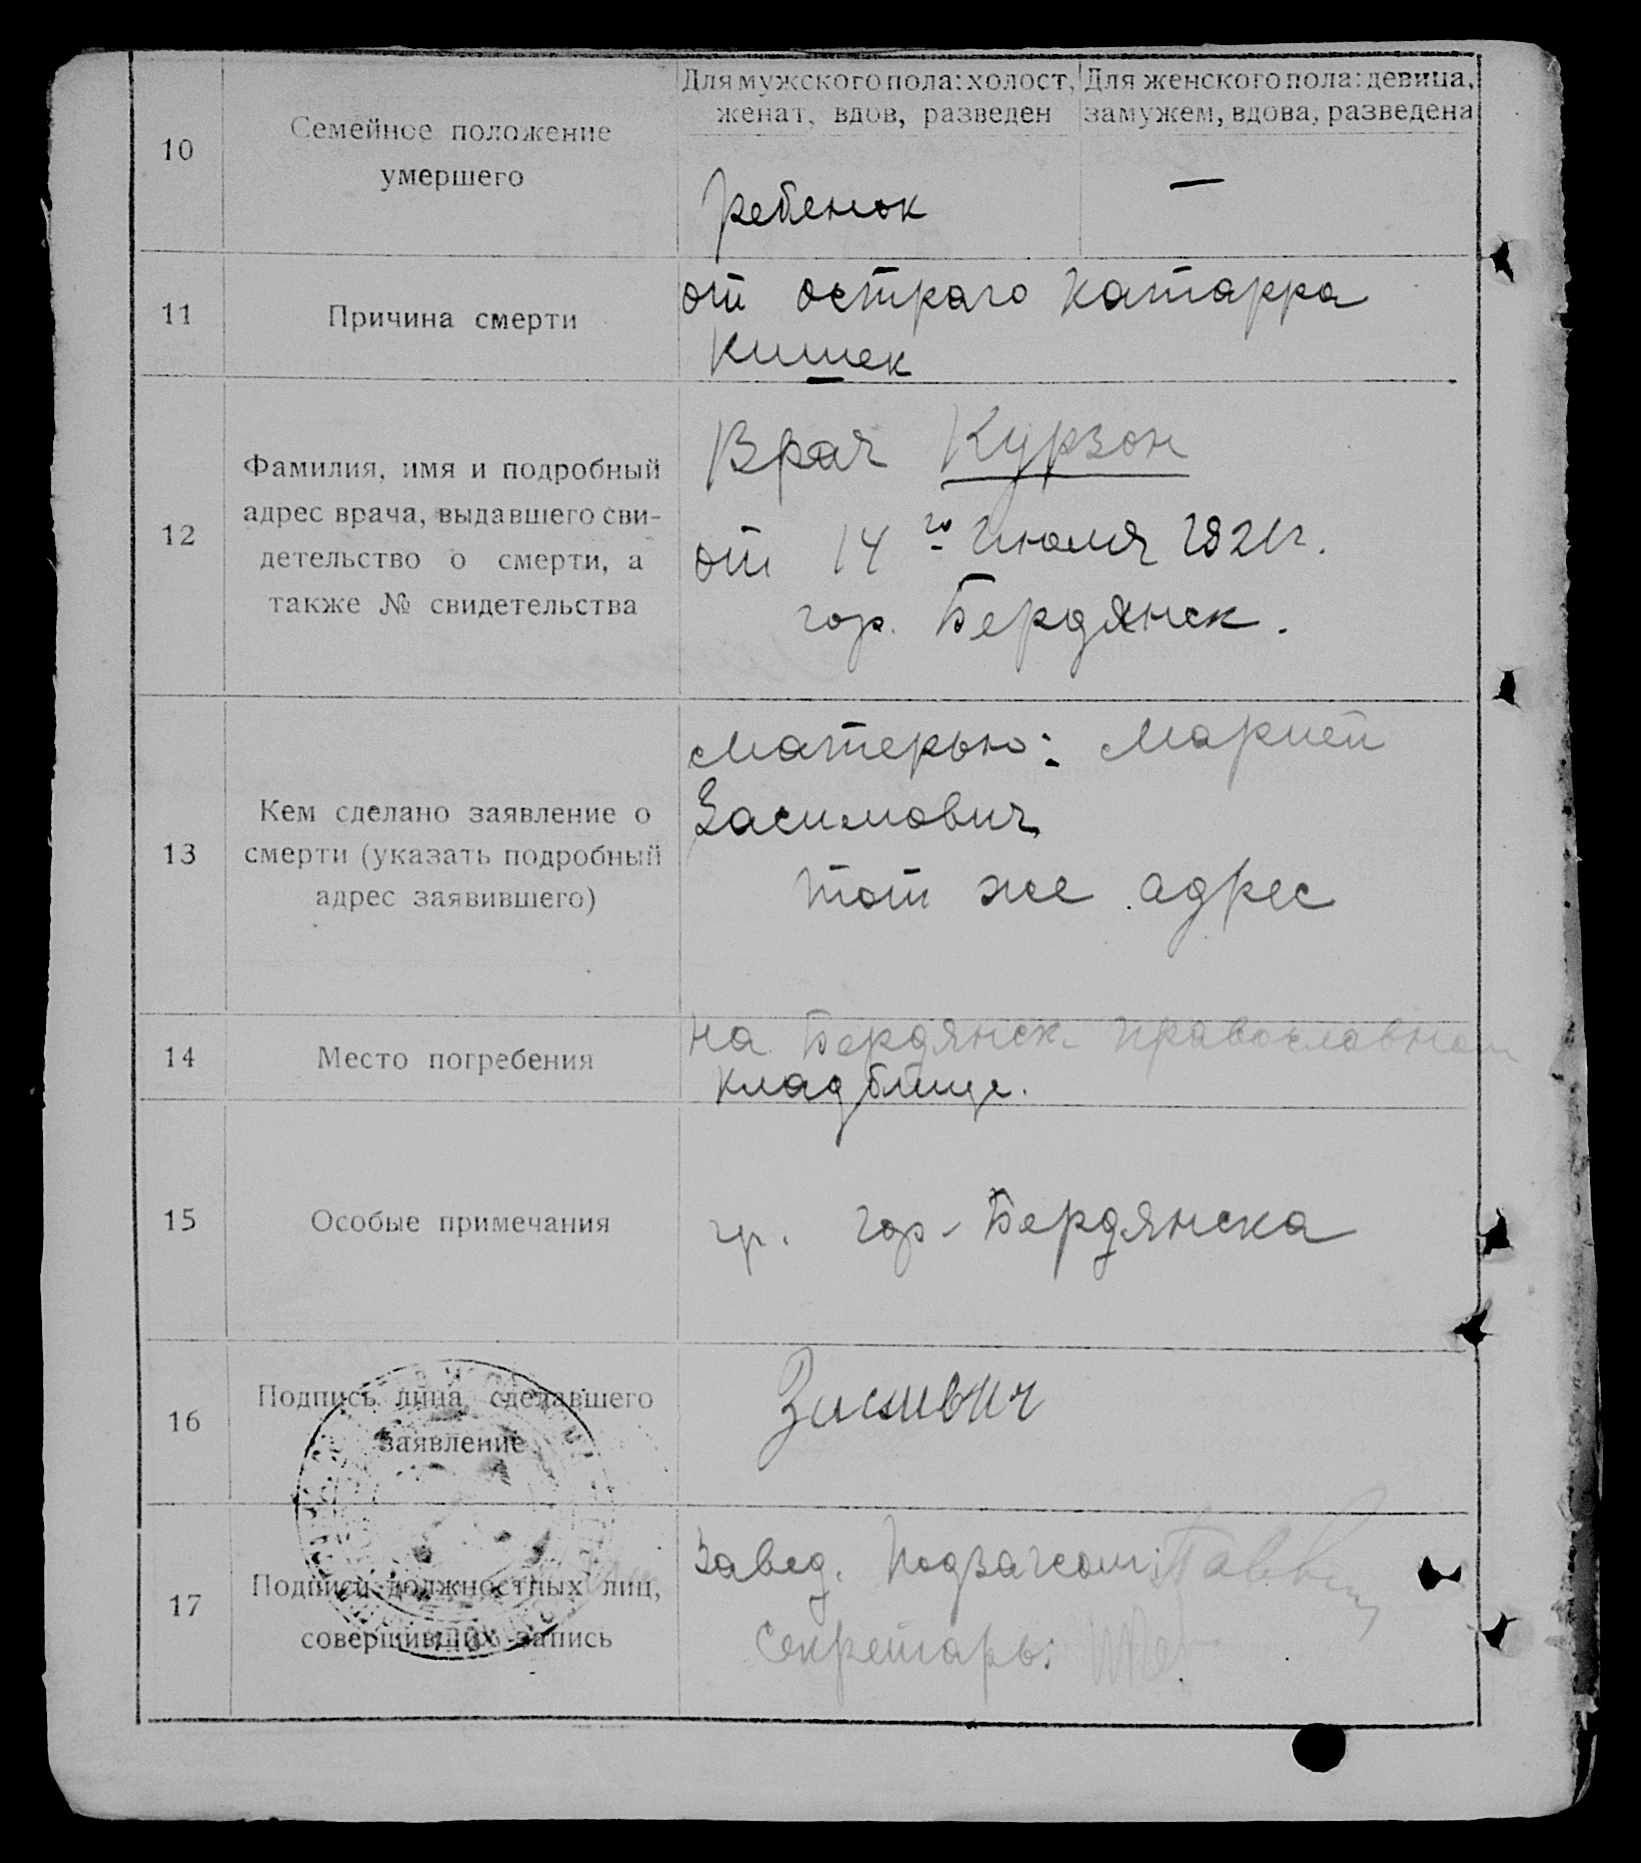 10
Семейное положение
умершего
Для мужского пола: холост,
женат, вдов, разведен
Для женского пола: девица,
замужем, вдова, разведена
ребенок
—
11
Причина смерти
от остраго катарра
кишек
12
Фамилия, имя и подробный
адрес врача, выдавшего сви-
детельство о смерти, а
также № свидетельства
Врач Курзон
от 14го Июля 1921г.
гор. Бердянск.
13
Кем сделано заявление о
смерти (указать подробный
адрес заявившего)
Матерью: Марией
Засимович
тот же адрес
14
Место погребения
на Бердянск. православном
кладбище.
15
Особые примечания
гр. гор. Бердянска
16
Подпись лица сделавшего
заявление
17
Подписи должностных лиц,
совершивших запись
Завед. Подзагсом:
Секретарь: